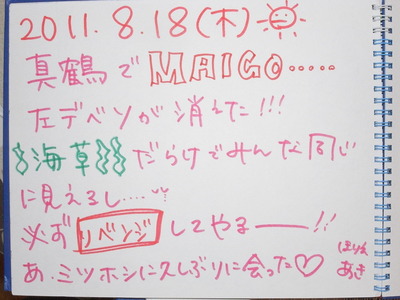 2011. 8.18(木)
真鶴で MAIGO.....
左デベソが消えた!!!
海草だらけでみんな同じ
に見えるし...
必ずリベンジしてやるー!!
あ、ミツホシに久しぶりに会った♡
あき